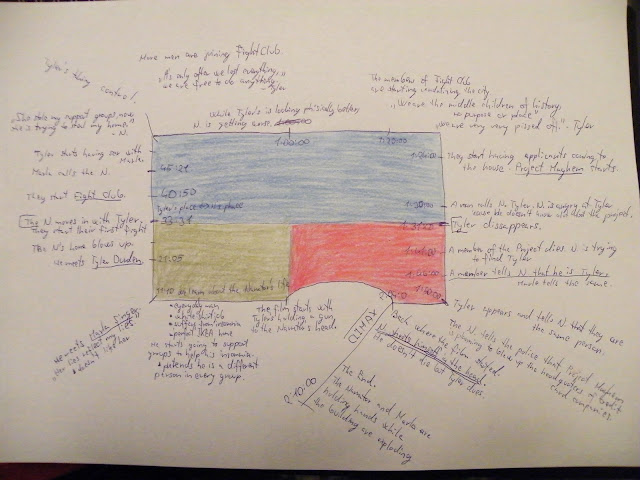 More men are joining Fight Club.
"It's only after we lost everything,
we are free to do anything."
- Tyler
Tyler's taking control.
"She stole my support groups, now
she is trying to steal my home."
- N.
While Tyler's is looking phisically better,
N. is getting worse.
The members of Fight Club
are starting vandalizing the city
"We are the middle children of history,
no purpose or place"
"we are very very pissed of." - Tyler
1:00:00
Tyler starts having sex with
Marla.
Marla calls the N.
They start Fight Club.
The N moves in with Tyler,
They start their first fight
The N's home blows up.
He meets Tyler Durden.
45:21
40:50
Tyler's place
33:31
21:05
They start having applicants coming to
the house. Project Mayhem starts.
N. is angry at Tyler
cause he doesn't know
the project.
Tyler dissappears.
A member of the Project dies. N is trying
to find Tyler
A member tells N that he is Tyler.
Marla tells the same.
Tyler appears and tells N that they are
the same person.
The N tells the police that Project Mayhem
is planning to blow up the headquarters of credit
card companies.
about the Narrator's life
everyday man
white shirt job
suffering from insomnia
perfect IKEA home
He starts going to support
groups to help his insomnia.
pretends he is a different
person in every group.
The film starts with
Tyler holding a gun
to the Narrator's head.
He meets Marla Singer
CLIMAX
Back where the film started.
Narrator himself in the head.
He doesn't die but Tyler does.
2:10:00
The End.
The Narrator and Marla are
holding hands while
the building are exploding